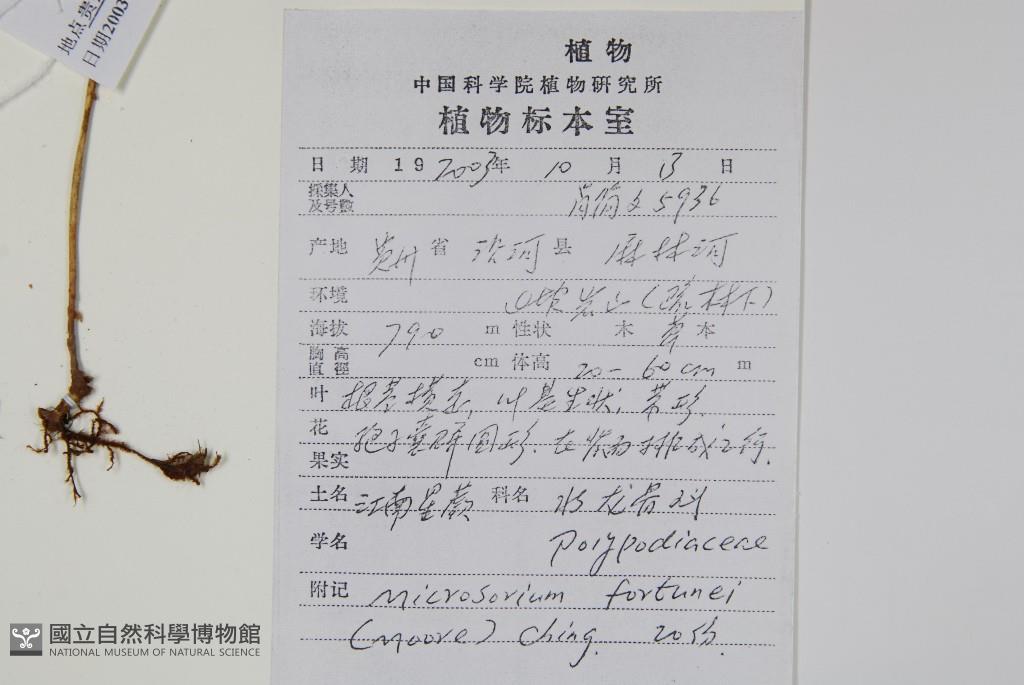 地点贵
日期2003
植物
中国科学院植物研究所
植物标本室
日 期 19 2003年 10 月 13 日
採集人及号数 简文 5936
产地 贵州 省 沿河 县 麻林河
环境 岩山(疏林下)
海拔 790 m 性状 木 草 本
胸高直徑 cm 体高 20-60cm m
叶 根茎横走, 叶基生状, 带形.
花 孢子囊群圆形. 在背面排成2行.
果实
土名 江南星蕨 科名 水龙骨科
学名 Polypodiaceae
附记 Microsorium fortunei
(Moore) Ching. 20份.
國立自然科學博物館
NATIONAL MUSEUM OF NATURAL SCIENCE